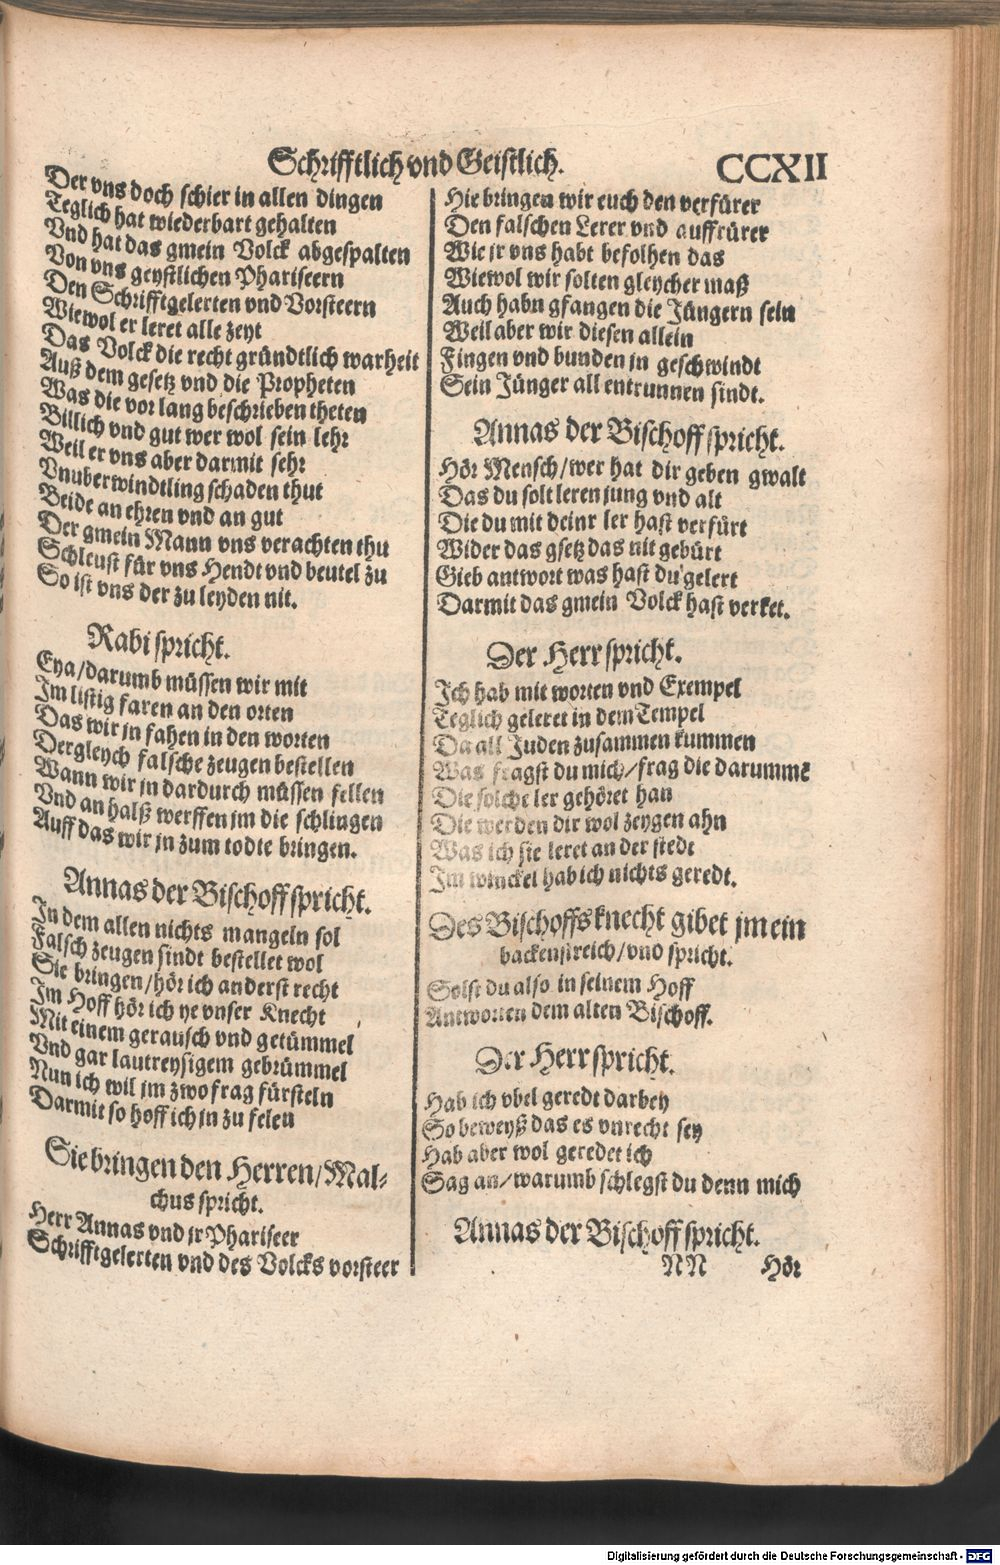 Schrifftlich vnd Geistlich.
CCXII
Der vns doch schier in allen dingen
Teglich hat wiederbart gehalten
Vnd hat das gmein Volck abgespalten
Von vns geystlichen Phariseern
Den Schrifftgelerten vnd Vorsteern
Wiewol er leret alle zeyt
Das Volck die recht gründtlich warheit
Auß dem gesetz vnd die Propheten
Was die vor lang beschrieben theten
Billich vnd gut wer wol sein lehr
Weil er vns aber darmit sehr
Vnuberwindtling schaden thut
Beide an ehren vnd an gut
Der gmein Mann vns verachten thu
Schleust für vns Hendt vnd beutel zu
So ist vns der zu leyden nit.
Rabi spricht.
Eya/darumb müssen wir mit
Im listig faren an den orten
Das wir jn fahen in den worten
Dergleych falsche zeugen bestellen
Wann wir jn dardurch müssen fellen
Vnd an halß werffen jm die schlingen
Auff das wir jn zum todte bringen.
Annas der Bischoff spricht.
In dem allen nichts mangeln sol
Falsch zeugen sindt bestellet wol
Sie bringen/hör ich anderst recht
Im Hoff hör ich ye vnser Knecht
Mit einem gerausch vnd getümmel
Vnd gar lautreysigem gebrümmel
Nun ich wil jm zwo frag fürsteln
Darmit so hoff ich jn zu felen
Sie bringen den Herren/Mal-
chus spricht.
Herr Annas vnd jr Phariseer
Schrifftgelerten vnd des Volcks vorsteer
Hie bringen wir euch den verfürer
Den falschen Lerer vnd auffrürer
Wie jr vns habt befolhen das
Wiewol wir solten gleycher maß
Auch habn gfangen die Jüngern sein
Weil aber wir diesen allein
Fingen vnd bunden jn geschwindt
Sein Jünger all entrunnen sindt.
Annas der Bischoff spricht.
Hör Mensch/wer hat dir geben gwalt
Das du solt leren jung vnd alt
Die du mit deinr ler hast verfürt
Wider das gsetz das nit gebürt
Gieb antwort was hast du gelert
Darmit das gmein Volck hast verket.
Der Herr spricht.
Ich hab mit worten vnd Exempel
Teglich geleret in dem Tempel
Da all Juden zusammen kummen
Was fragst du mich/frag die darumme
Die solche ler gehöret han
Die werden dir wol zeygen ahn
Was ich sie leret an der stedt
Im winckel hab ich nichts geredt.
Des Bischoffs knecht gibet jm ein
backenstreich/vnd spricht.
Solst du also in seinem Hoff
Antworten dem alten Bischoff.
Der Herr spricht.
Hab ich vbel geredt darbey
So beweyß das es vnrecht sey
Hab aber wol geredet ich
Sag an/warumb schlegst du denn mich
Annas der Bischoff spricht.
NN Hör
Digitalisierung gefördert durch die Deutsche Forschungsgemeinschaft - DFG